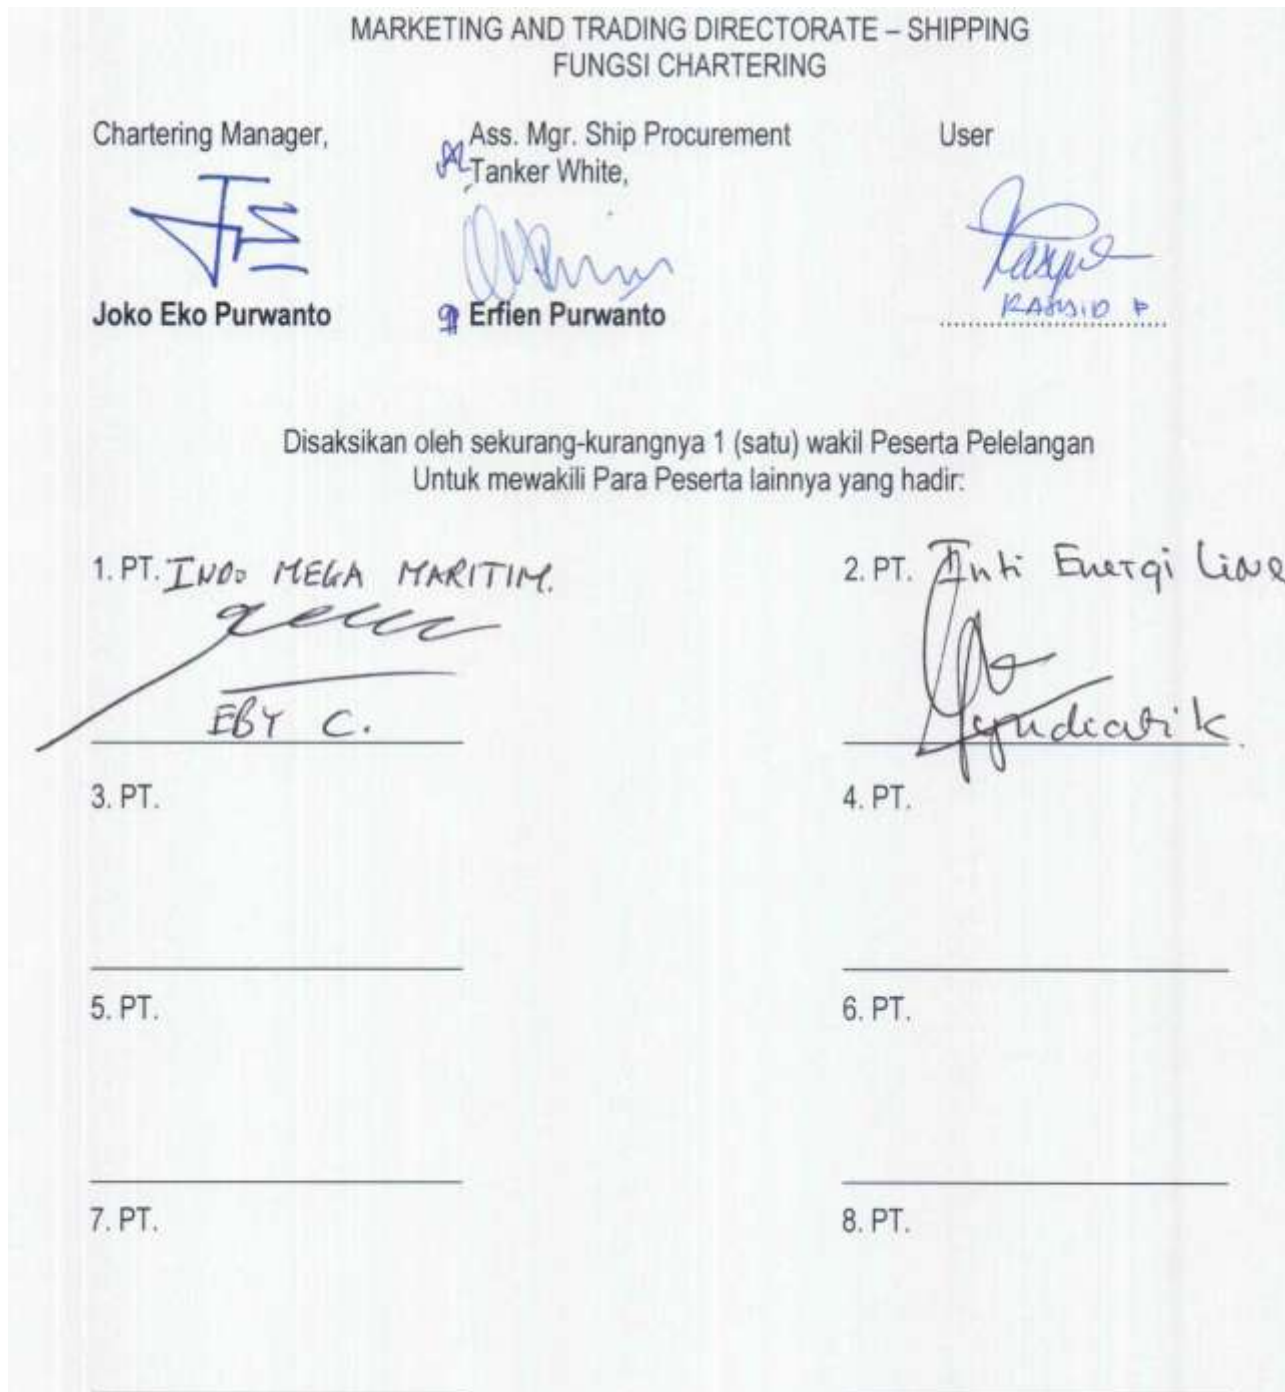 MARKETING AND TRADING DIRECTORATE – SHIPPING
FUNGSI CHARTERING
Chartering Manager,
Ass. Mgr. Ship Procurement
Tanker White,
User
Joko Eko Purwanto
Erfien Purwanto
Disaksikan oleh sekurang-kurangnya 1 (satu) wakil Peserta Pelelangan
Untuk mewakili Para Peserta lainnya yang hadir:
1. PT. INDO MEGA MARITIM.
EBY C.
2. PT. Inti Energi Line
3. PT.
4. PT.
5. PT.
6. PT.
7. PT.
8. PT.